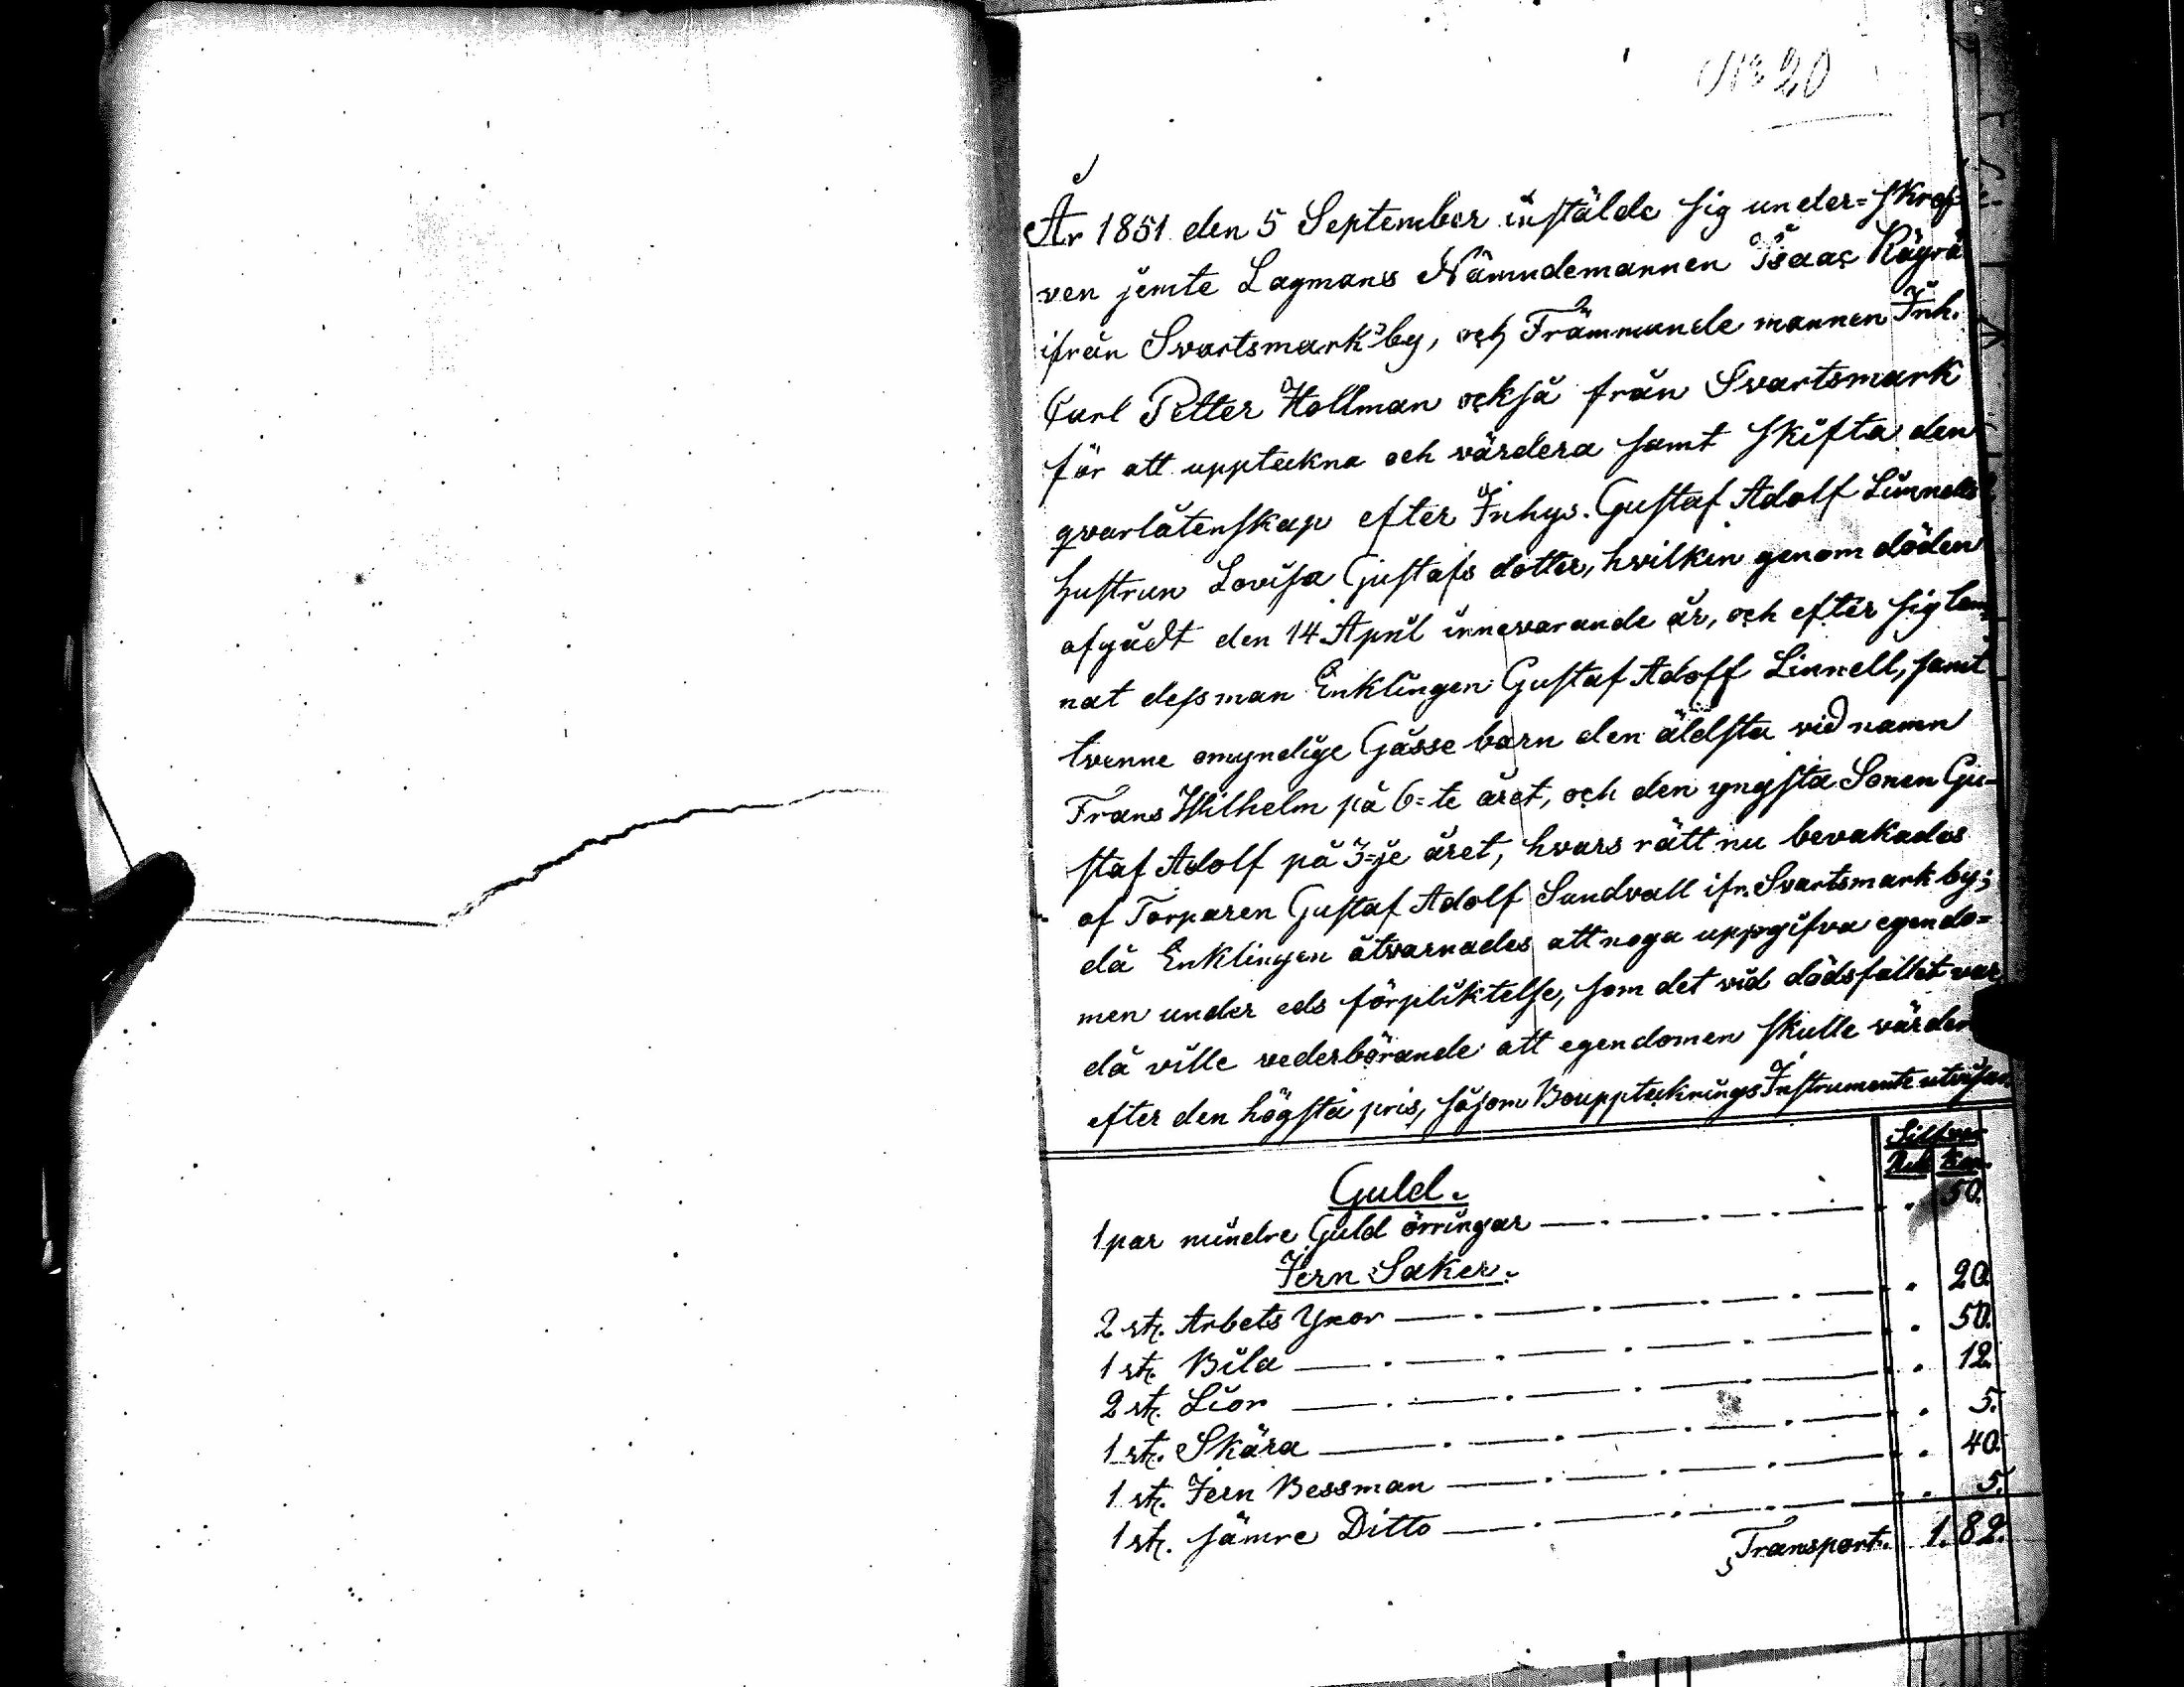 No 20
År 1851 den 5 September instälde sig under=skref-
ven jemte Lagmans Nämndemannen Isaac Rägrä
ifrån Svartsmark by, och Främmande mannen Inh.
Carl Petter Hollman också från Svartsmark
för att uppteckna och värdera samt skifta den
qvarlåtenskap efter Inhys. Gustaf Adolf Linnells
hustrun Lovisa Gustafs dotter, hvilken genom döden
afgådt den 14 April innevarande år, och efter sig lem-
nat dess man Enklingen Gustaf Adolf Linnell, samt
tvenne omyndige Gåsse barn den äldsta vid namn
Frans Wilhelm på 6=te året, och den yngsta Sonen Gu-
staf Adolf på 3=je året, hvars rätt nu bevakades
af Torparen Gustaf Adolf Sundvall ifr. Svartsmark by;
då Enklingen åtvarnades att noga uppgifva egendo=
men under eds förpliktelse, som det vid dödsfallet var
då ville vederbörande att egendomen skulle värder
efter den högsta pris, såsom Boupptecknings Instrumente utvisar
Silfver
Rub. Kop.
Guld.
1 par mindre Guld örringar — . — . — . — . . 50.
Jern Saker.
2 st. Arbets Yxor — . — . — . — . . 20.
1 st. Bila — . — . — . — . . 50.
2 st. Lior — . — . — . — . . 12.
1 st. Skära — . — . — . — . . 5.
1 st. Jern Bessman — . — . — . . 40.
1 st. sämre Ditto — . — . — . . 5.
Transport. 1. 82.